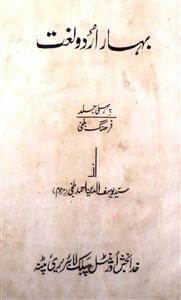 بہار اردو لغت
پہلی جلد
فرہنگ بلخی
از
سید یوسف الدین احمد بلخی (مرحوم)
خدا بخش اورینٹل پبلک لائبریری پٹنہ